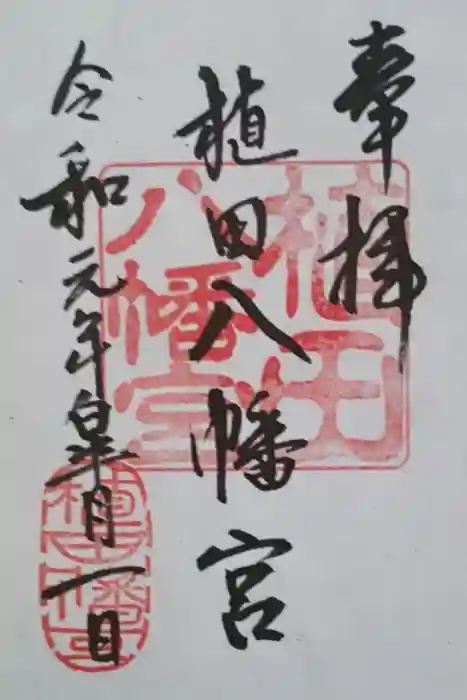 奉拝
植田八幡宮
令和元年皐月一日
植田
八幡宮
植田
八幡宮